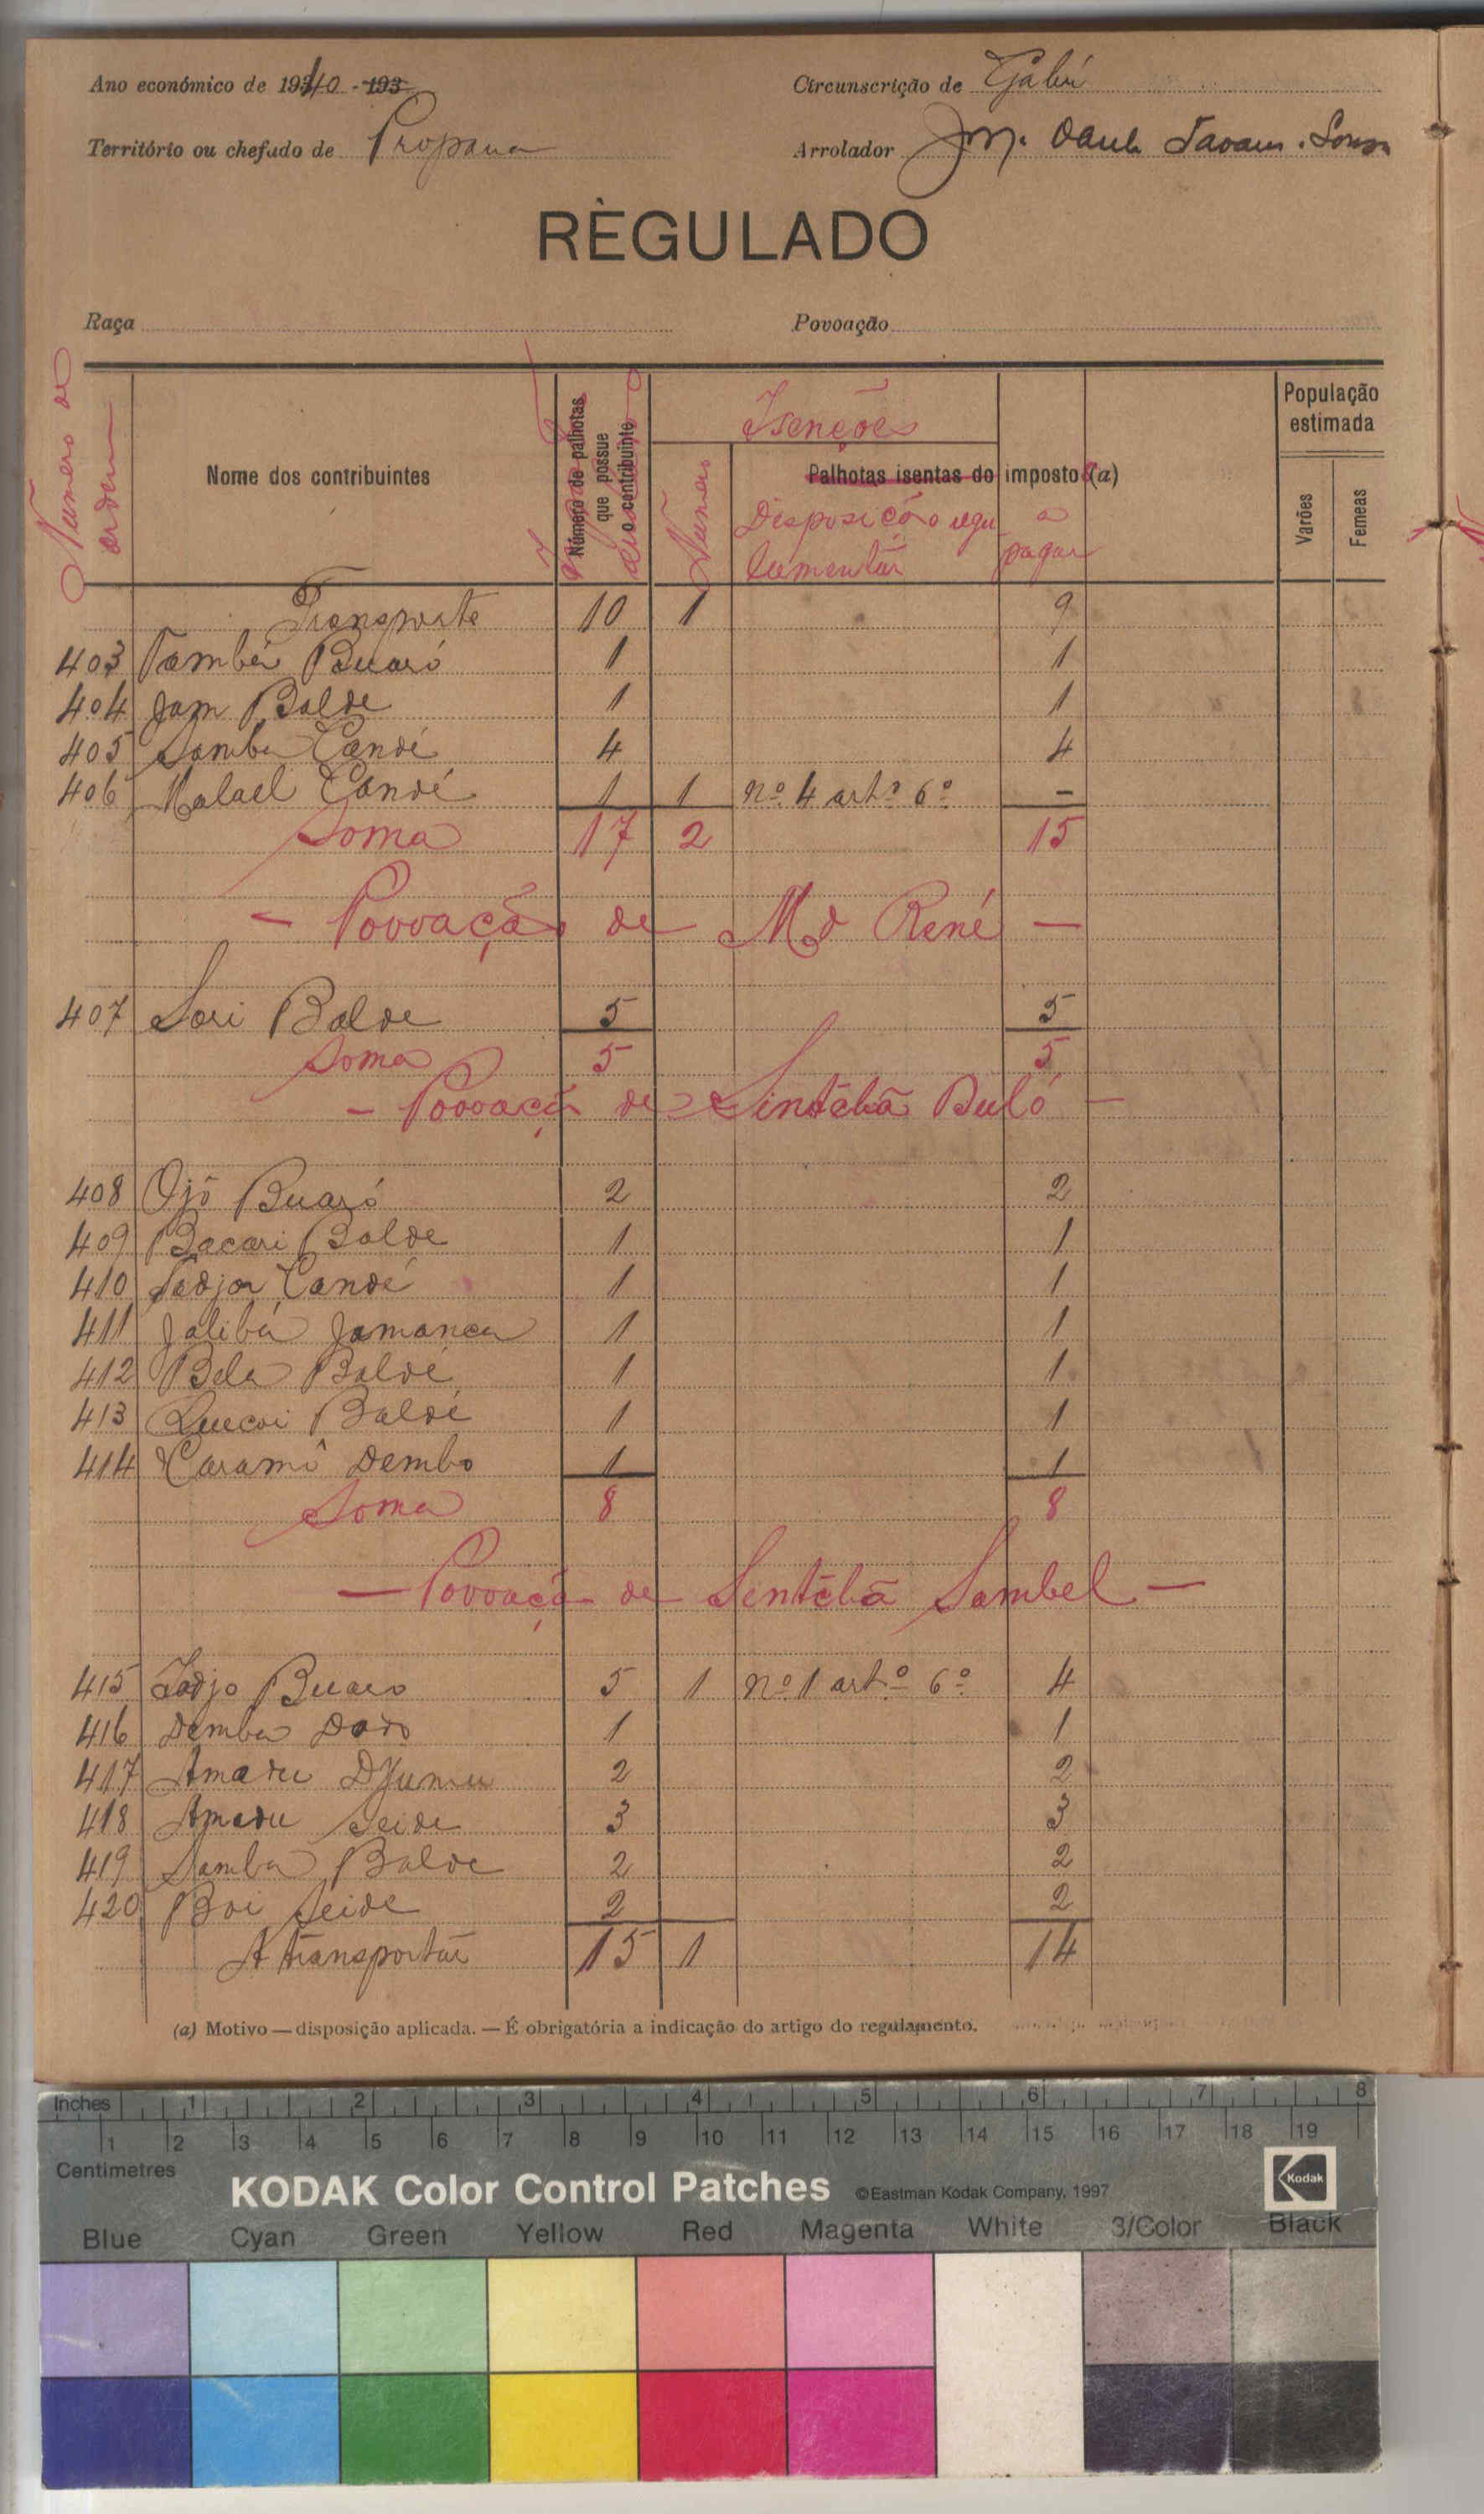 Ano económico de 1940 - 193
Circunscrição de Gabú
Território ou chefado de Propana
Arrolador
RÈGULADO
Raça
Povoação
Número de ordem
Nome dos contribuintes
Número de palhotas que possue o contribuinte
Isenções
Número
Palhotas isentas do imposto (a)
Disposição regu
lamentar
a
pagar
População estimada
Varões
Femeas
Transporte 10 1 9
403 Tambá Buaró 1 1
404 Jam Balde 1 1
405 Samba Candé 4 4
406 Malael Candé 1 1 nº 4 artº 6º -
Soma 17 2 15
- Povoação de Md René -
407 Sori Balde 5 5
Soma 5 5
- Povoação de Sintchã Buló -
408 Ojó Buaró 2 2
409 Bacari Balde 1 1
410 Tadjo Candé 1 1
411 Jalibá Jamanca 1 1
412 Bela Baldé 1 1
413 Baldé 1 1
414 Caramô Dembo 1 1
Soma 8 8
- Povoação de Sentchã Sambel -
415 Buaro 5 1 nº 1 artº 6º 4
416 Demba 1 1
417 Amadu 2 2
418 Amadu Seide 3 3
419 Samba Balde 2 2
420 Boi Seide 2 2
A transportar 15 1 14
(a) Motivo — disposição aplicada. — É obrigatória a indicação do artigo do regulamento.
Inches 1 2 3 4 5 6 7 8
1 2 3 4 5 6 7 8 9 10 11 12 13 14 15 16 17 18 19
Centimetres
KODAK Color Control Patches ©Eastman Kodak Company, 1997 Kodak
Blue Cyan Green Yellow Red Magenta White 3/Color Black